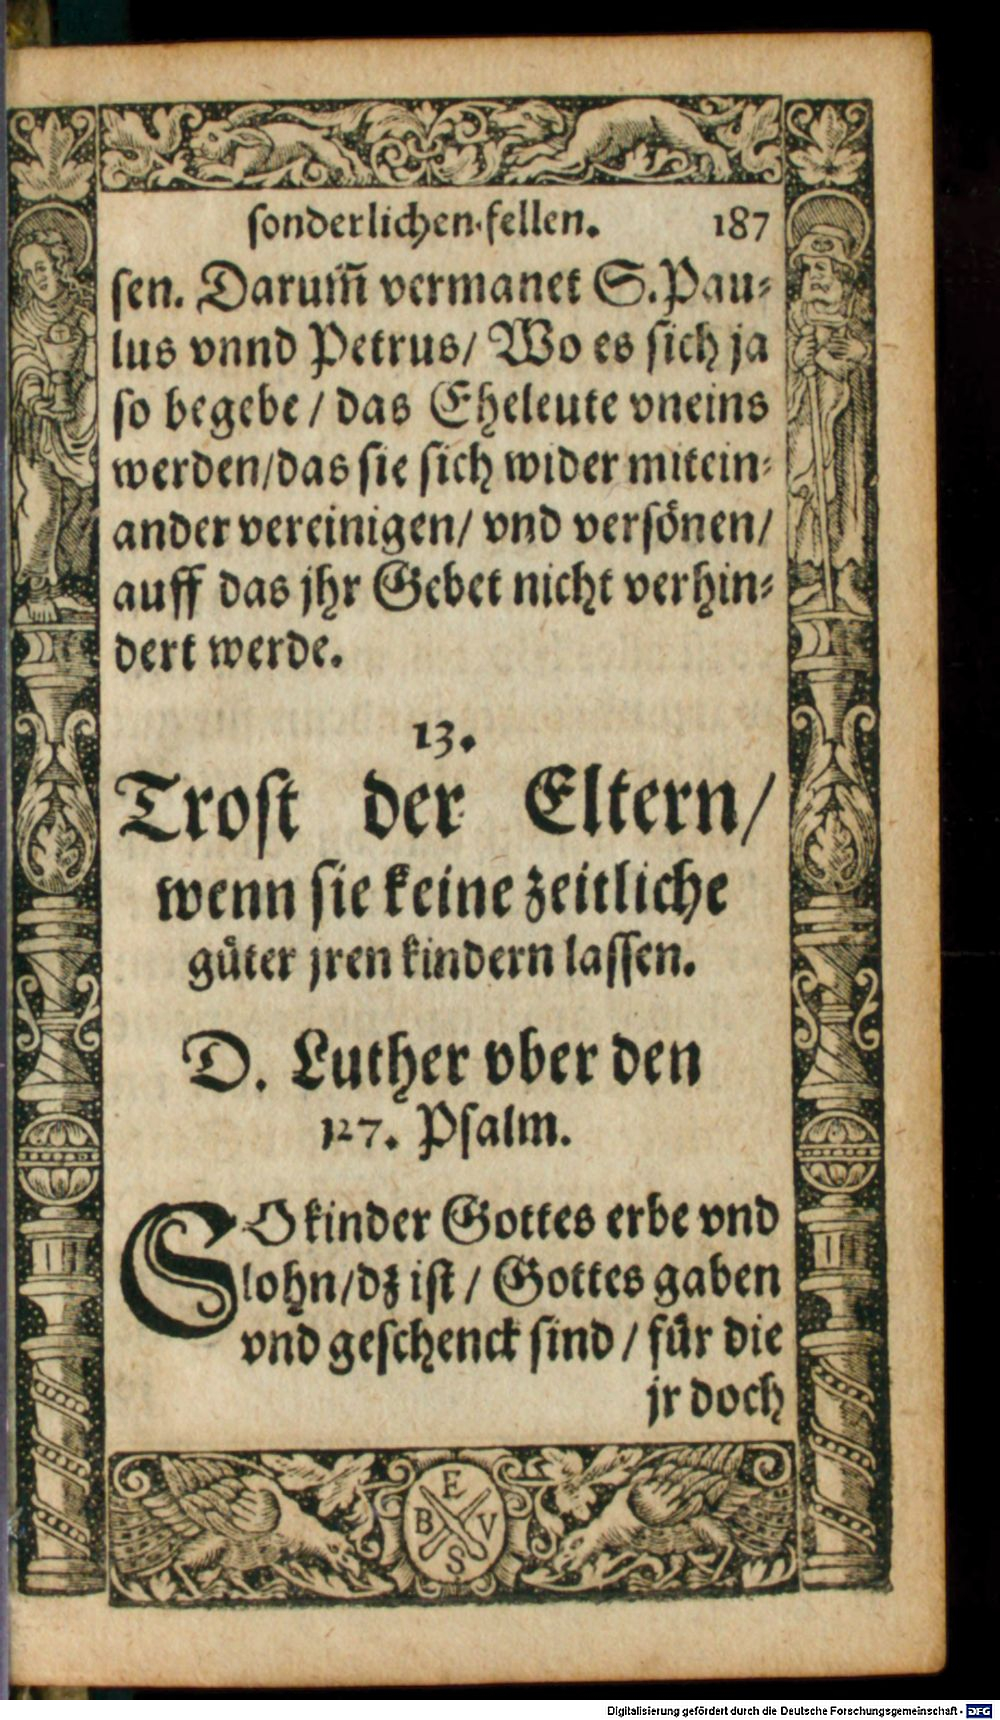 sonderlichen fellen. 187
sen. Darum̃ vermanet S. Pau⸗
lus vnnd Petrus/ Wo es sich ja
so begebe / das Eheleute vneins
werden/das sie sich wider mitein⸗
ander vereinigen/ vnd versönen/
auff das jhr Gebet nicht verhin⸗
dert werde.
13.
Trost der Eltern/
wenn sie keine zeitliche
güter jren kindern lassen.
D. Luther vber den
127. Psalm.
SO kinder Gottes erbe vnd
lohn/dz ist / Gottes gaben
vnd geschenck sind / für die
jr doch
E
B V
S
Digitalisierung gefördert durch die Deutsche Forschungsgemeinschaft - DFG